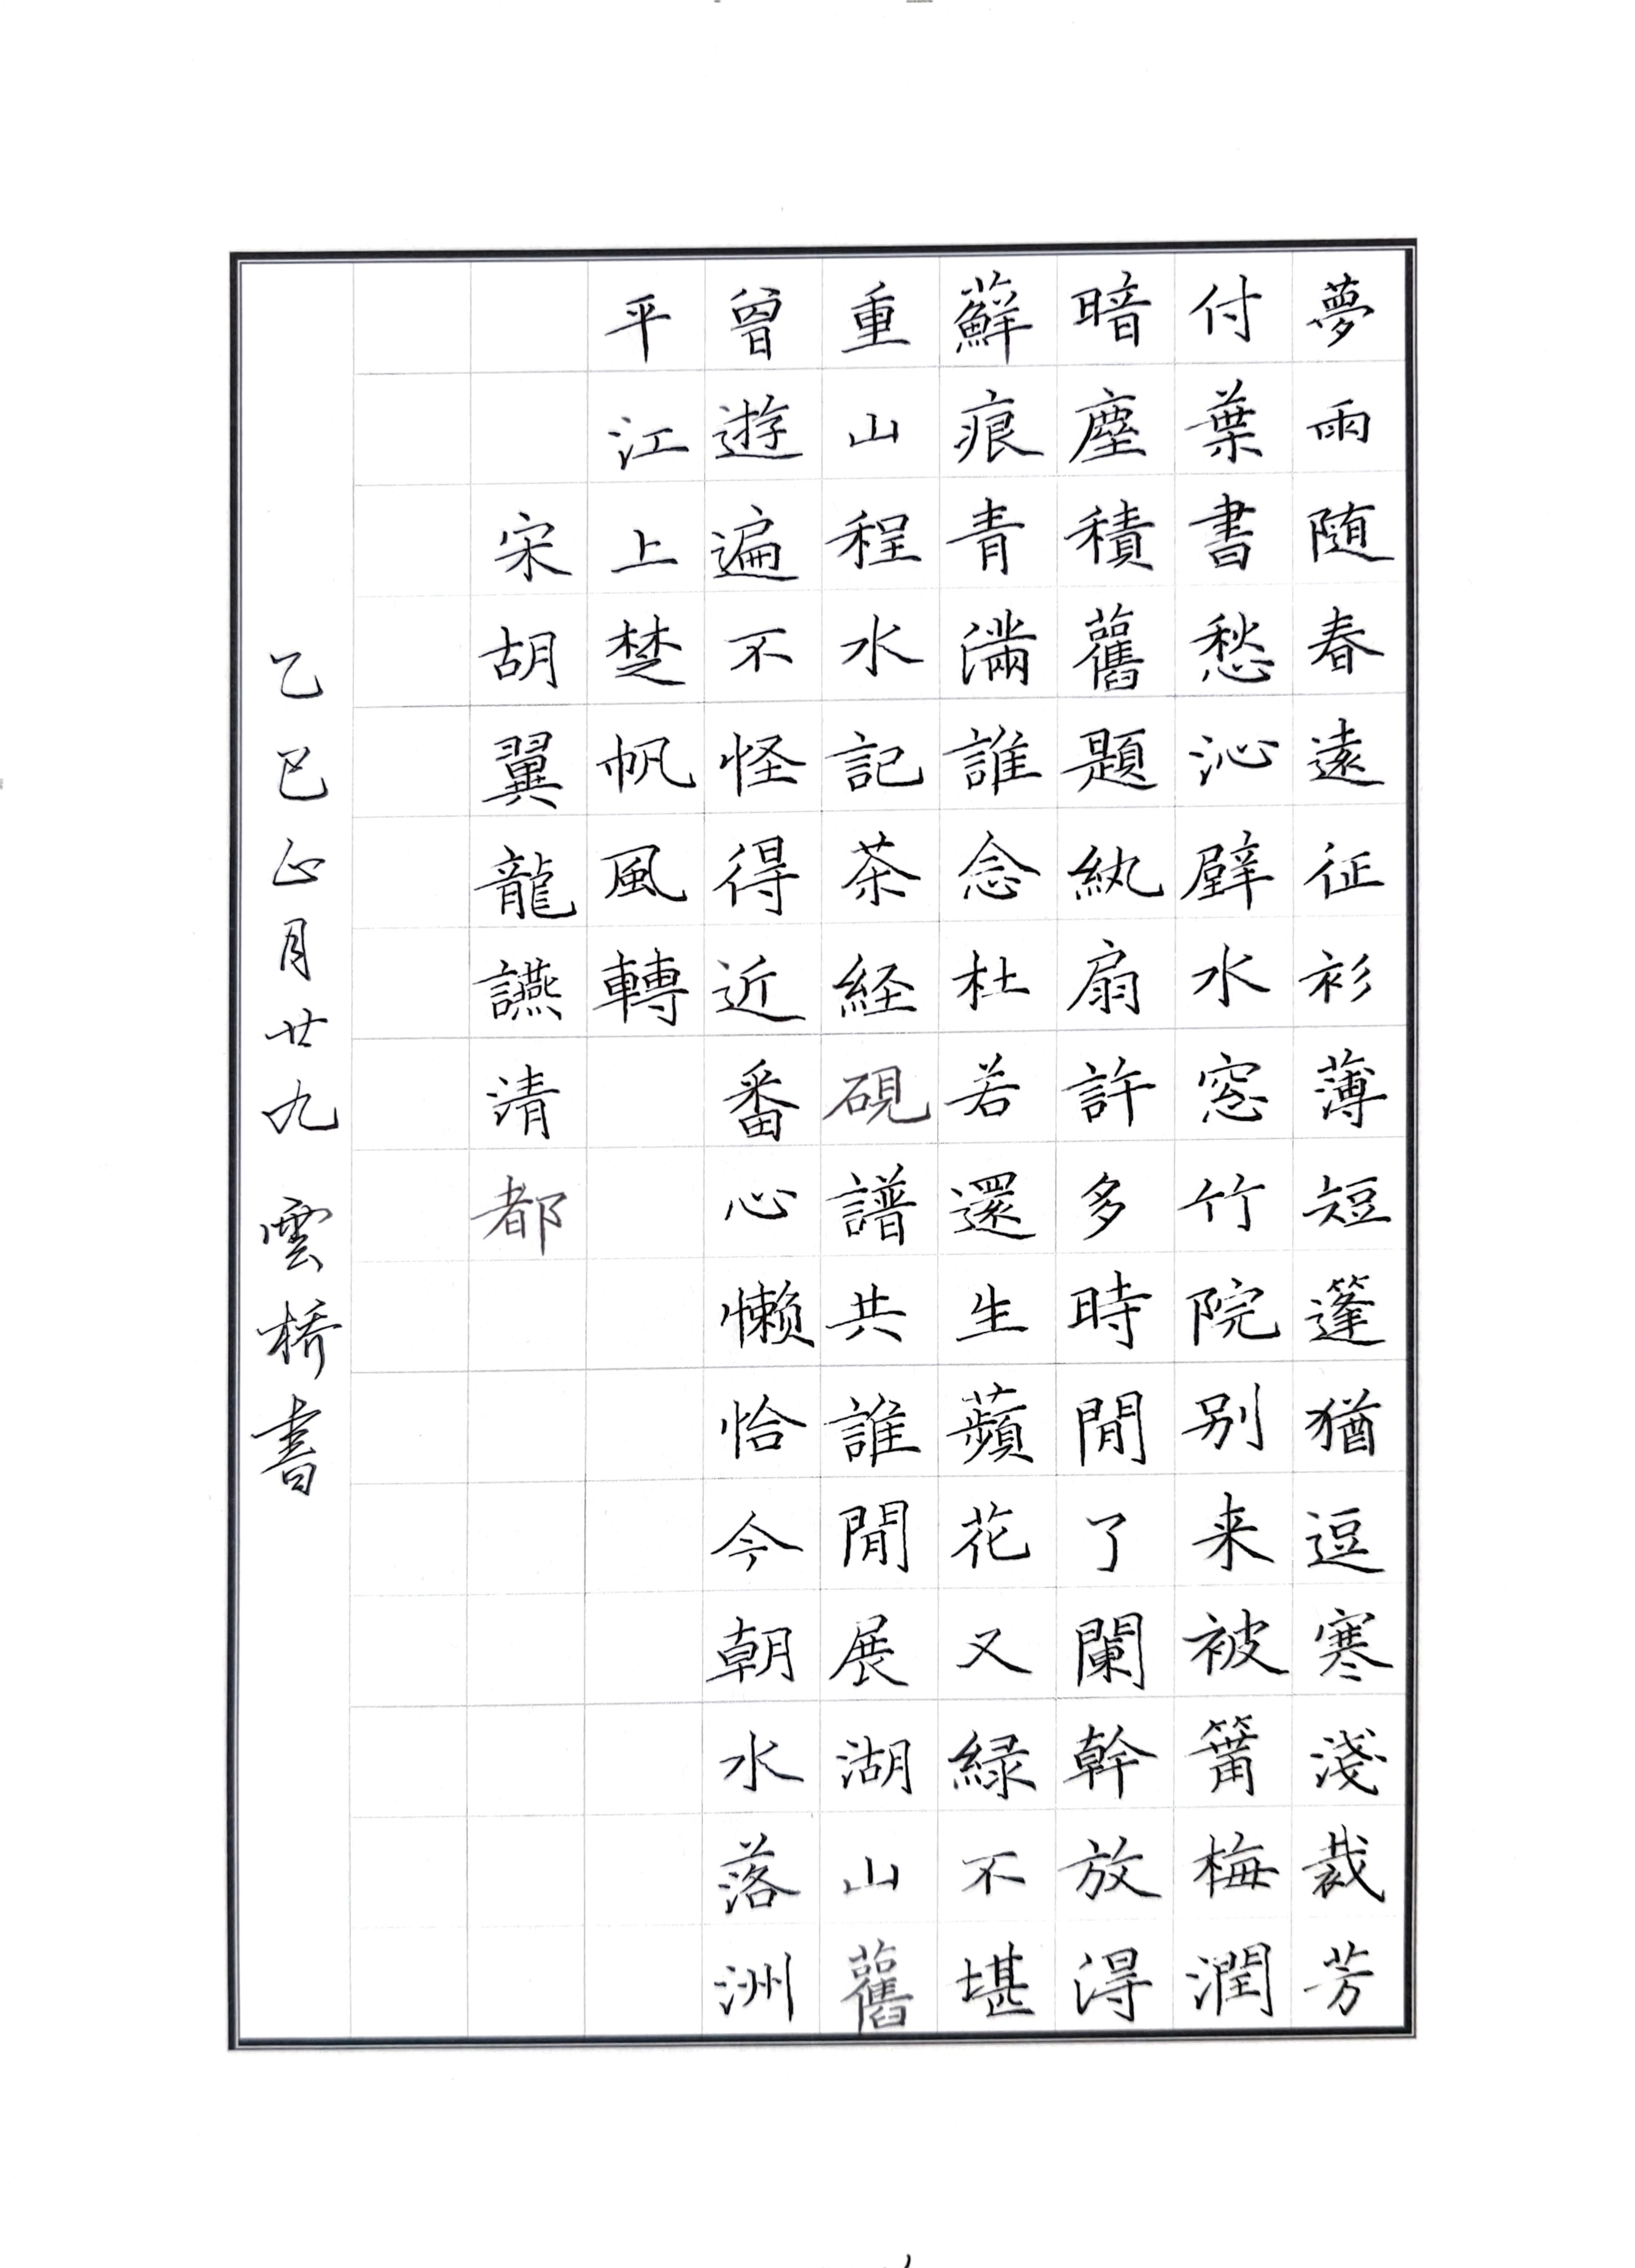 夢雨随春遠征衫薄短篷猶逗寒淺裁芳
付葉書愁沁壁水窓竹院別来被箾梅潤
暗塵積舊題紈扇許多時閒了闌幹放淂
蘚痕青滿誰念杜若還生蘋花又緑不堪
重山程水記茶経硯譜共誰閒展湖山舊
曾遊遍不怪得近番心懶恰今朝水落洲
平江上楚帆風轉
宋胡翼龍讌清都
乙巳正月廿九雲橋書